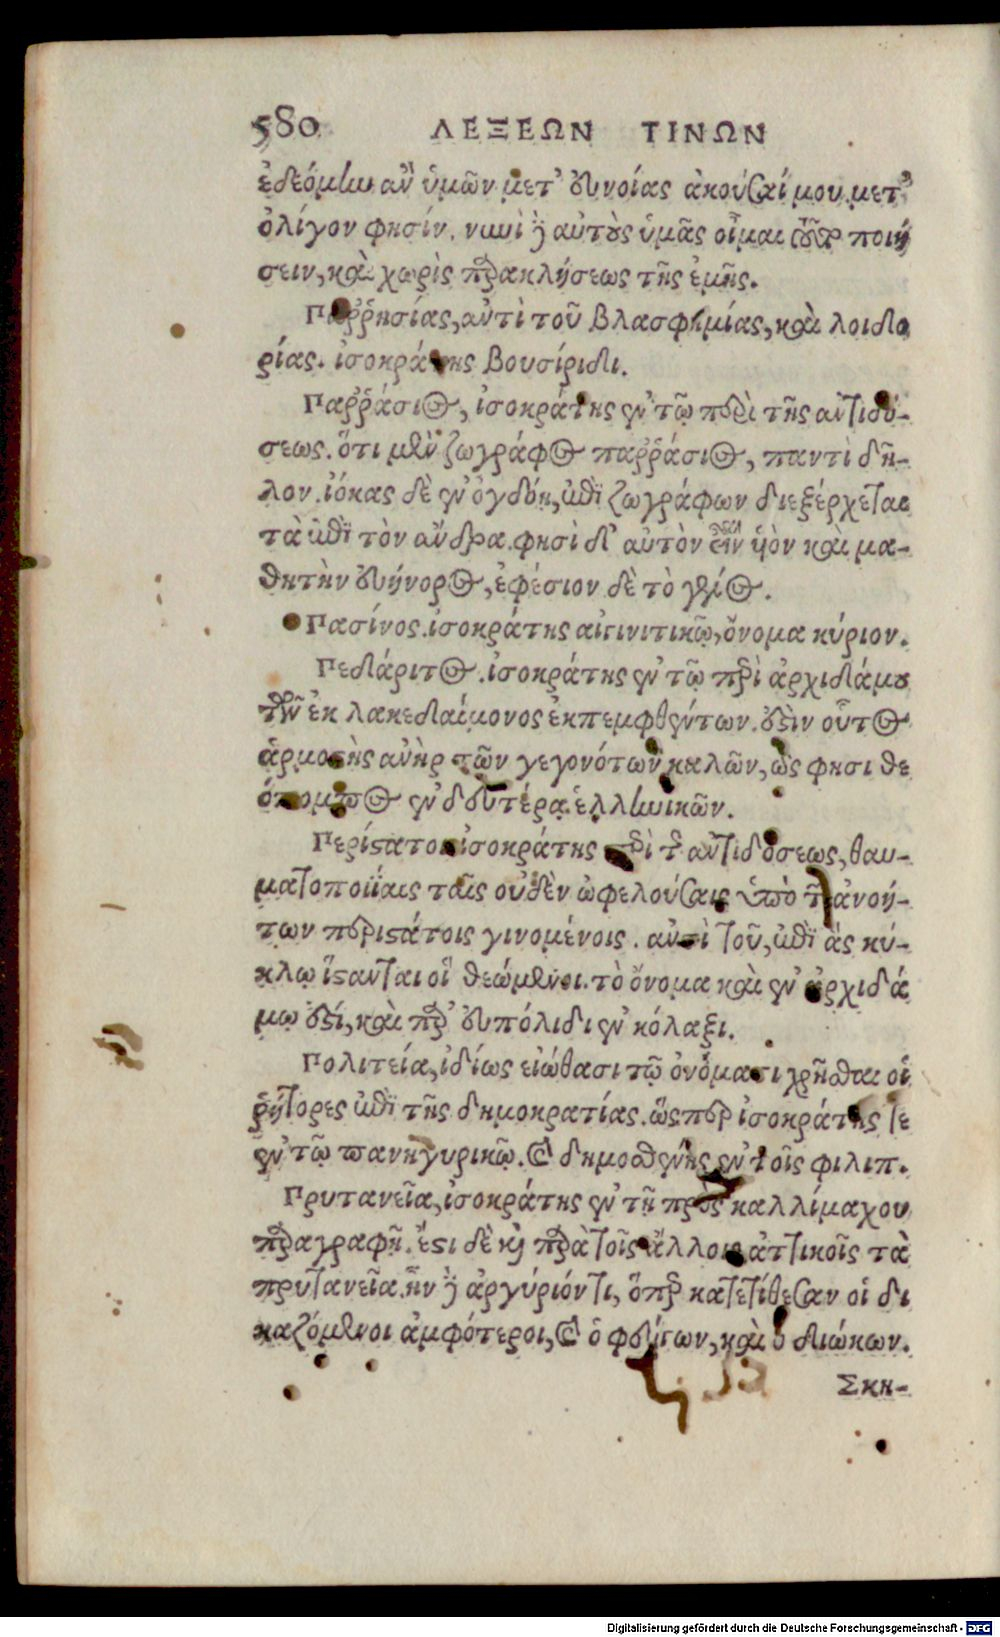 580 ΛΕΞΕΩΝ ΤΙΝΩΝ
ἐδεόμην ἂν ὑμῶν μετ' εὐνοίας ἀκοῦσαί μου. μετ'
ὀλίγον φησίν. νυνὶ δὲ αὐτοὺς ὑμᾶς οἶμαι τοῦτο ποιή
σειν, καὶ χωρὶς παρακλήσεως τῆς ἐμῆς.
Παῤῥησίας, ἀντὶ τοῦ βλασφημίας, καὶ λοιδο
ρίας. ἰσοκράτης βουσίριδι.
Παῤῥάσιος, ἰσοκράτης ἐν τῷ περὶ τῆς ἀντιδό-
σεως. ὅτι μὲν ζωγράφος παῤῥάσιος, παντὶ δῆ-
λον. ἰόκας δὲ ἐν ὀγδόῃ, ἐπὶ ζωγράφων διεξέρχεται
τὰ ἐπὶ τὸν ἄνδρα. φησὶ δ' αὐτὸν εἶναι ὑὸν καὶ μα-
θητὴν εὐήνορος, ἐφέσιον δὲ τὸ γένος.
Πασίνος. ἰσοκράτης αἰγινιτικῷ, ὄνομα κύριον.
Πεδάριτος. ἰσοκράτης ἐν τῷ περὶ ἀρχιδάμου
τῶν ἐκ λακεδαίμονος ἐκπεμφθέντων. ἐστὶν οὗτος
ἁρμοστὴς ἀνὴρ τῶν γεγονότων καλῶν, ὥς φησι θε
όπομπος ἐν δευτέρᾳ ἑλληνικῶν.
Περίστατοι ἰσοκράτης περὶ τῆς ἀντιδόσεως, θαυ-
ματοποιίαις ταῖς οὐδὲν ὠφελούσαις ὑπὸ τῶν ἀνοή-
των περιστάτοις γινομένοις. ἀντὶ τοῦ, ἐπὶ ἃς κύ-
κλῳ ἵστανται οἱ θεώμενοι. τὸ ὄνομα καὶ ἐν ἀρχιδά
μῳ ἐστί, καὶ παρ' εὐπόλιδι ἐν κόλαξι.
Πολιτεία, ἰδίως εἰώθασι τῷ ὀνόματι χρῆσθαι οἱ
ῥήτορες ἐπὶ τῆς δημοκρατίας. ὥσπερ ἰσοκράτης τε
ἐν τῷ πανηγυρικῷ. καὶ δημοσθένης ἐν τοῖς φιλιπ.
Πρυτανεῖα, ἰσοκράτης ἐν τῇ πρὸς καλλίμαχον
παραγραφῇ. ἔστι δὲ καὶ παρὰ τοῖς ἄλλοις ἀττικοῖς τὰ
πρυτανεῖα. ἦν δὲ ἀργύριόν τι, ὅπερ κατετίθεσαν οἱ δι
καζόμενοι ἀμφότεροι, καὶ ὁ φεύγων, καὶ ὁ διώκων.
Σκη-
Digitalisierung gefördert durch die Deutsche Forschungsgemeinschaft - DFG